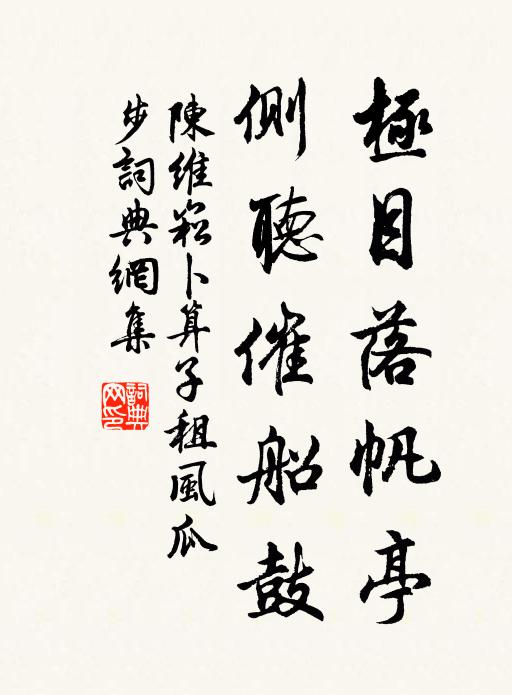 極目落帆亭
側聽催船鼓
陳維崧卜算子祖風瓜
步詞典網集
詞典網印